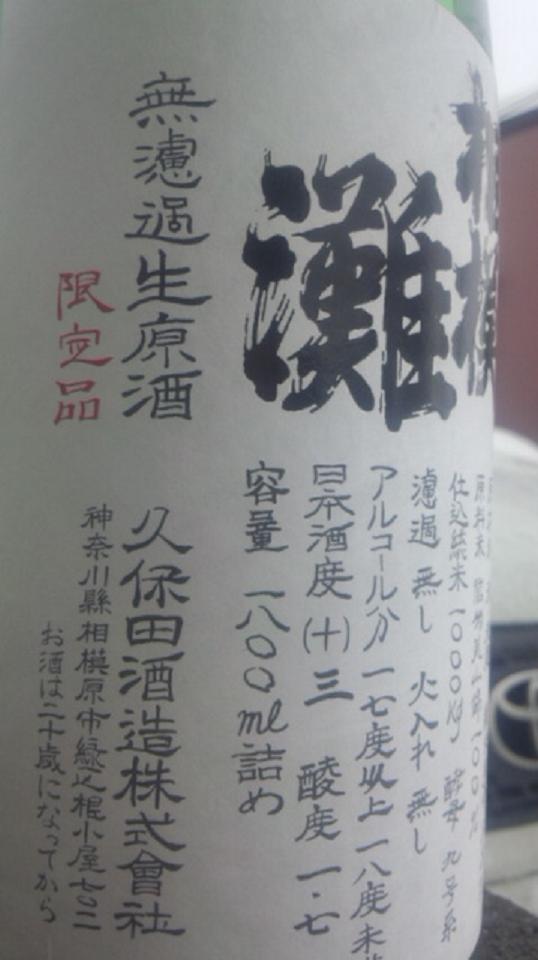 相模
灘
仕込総米 一〇〇〇kg 酵母 九号系
濾過 無し 火入れ 無し
アルコール分 一七度以上 一八度未
日本酒度 (十) 三 酸度 一・七
容量 一八〇〇ml詰め
無濾過生原酒
久保田酒造株式會社
限定品
神奈川縣相模原市緑区根小屋七〇二
お酒は二十歳になってから